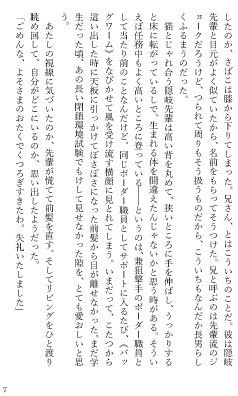 したのか、さばこは膝から下りてしまった。兄さん、とはこういうのことだ。彼は隠岐
先輩と目元がよく似ていたから、名前をもらってそうつけた。兄と呼ぶのは先輩流のジ
ョークだろうけど、つられて周りもそう扱うものだから、こういちもなんだか長男らし
くふるまうのだった。
猫とじゃれ合う隠岐先輩は高い背を丸めて、狭いところに手を伸ばし、うっかりする
と床に転がっているしで、生まれる体を間違えたんじゃないかと思う時がある。そうい
えば任務時もよく高いところに登っている――というのは、兼狙撃手のボーダー職員と
して当たり前のことなんだけど。同じボーダー職員としてサポートに入るたび、《バッ
グワーム》をなびかせて風を受ける横顔に見とれてしまう。いまだって、こたつから
這い出した時に天板に引っかけてぼさぼさになった前髪から目が離せなかった。まだ学
生だった頃、あの長い閉鎖環境試験でもけして見せなかった隙を、とても愛おしいと思
う。
あたしの視線に気づいたのか、先輩が慌てて前髪を直す。そしてリビングをひと渡り
眺め回して、自分がどこにいるのか、思い出したようだった。
「ごめんな、よそさまのおたくでくつろぎすぎたわ。失礼いたしました」
7